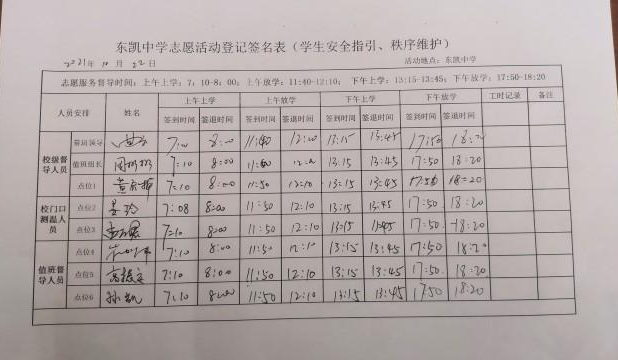 东凯中学志愿活动登记签名表（学生安全指引、秩序维护）
2021年10月22日 活动地点：东凯中学
志愿服务督导时间：上午上学：7：10-8：00；上午放学：11:40-12:10； 下午上学：13:15-13:45；下午放学：17:50-18:20
人员安排 姓名 上午上学 上午放学 下午上学 下午放学 工时记录 备注
签到时间 签退时间 签到时间 签退时间 签到时间 签退时间 签到时间 签退时间
校级督导人员 带班领导 8:00 13:15 13:45 17:50 18:20
值班组长 7:10 8:00 13:15 13:45 17:50 18:20
点位1 7:10 8:00 11:50 12:10 13:15 13:45 17:50 18:20
校门口测温人员 点位2 7:08 8:00 11:50 12:10 13:15 13:45 17:50 18:20
点位3 7:10 8:00 11:50 12:10 13:15 17:50 18:20
值班督导人员 点位4 7:10 8:00 11:50 12:10 13:15 13:45 17:50 18:20
点位5 7:10 8:00 11:50 12:10 13:15 13:45 17:50 18:20
点位6 孙凯 7:10 8:00 11:50 12:10 13:15 13:45 17:50 18:20